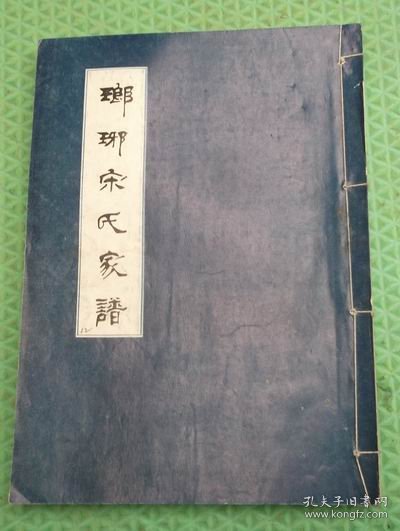 瑯琊宋氏家譜
12
孔夫子旧书网
www.kongfz.com